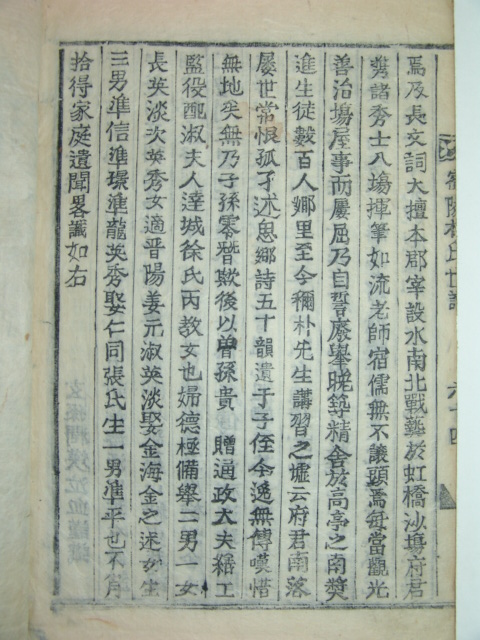 密陽朴氏世譜 六十四
焉及長文詞大擅本郡宰設水南北戰藝於虹橋沙塲府君
携諸秀士入塲揮筆如流老師宿儒無不讓頭焉每當觀光
善治塲屋事而屢屈乃自誓廢擧晩築精舍於高亭之南奬
進生徒數百人鄕里至今稱朴先生講習之墟云府君南落
屢世常恨孤孑述思鄕詩五十韻遺于子侄今逸無傳嘆惜
無地矣無乃子孫零替歟後以曾孫貴 贈通政大夫繕工
監役配淑夫人達城徐氏丙敎女也婦德極備擧二男一女
長英淡次英秀女適晋陽姜元淑英淡娶金海金之迷女生
三男準信準璟準龍英秀娶仁同張氏生一男準平也不肖
拾得家庭遺聞畧識如右